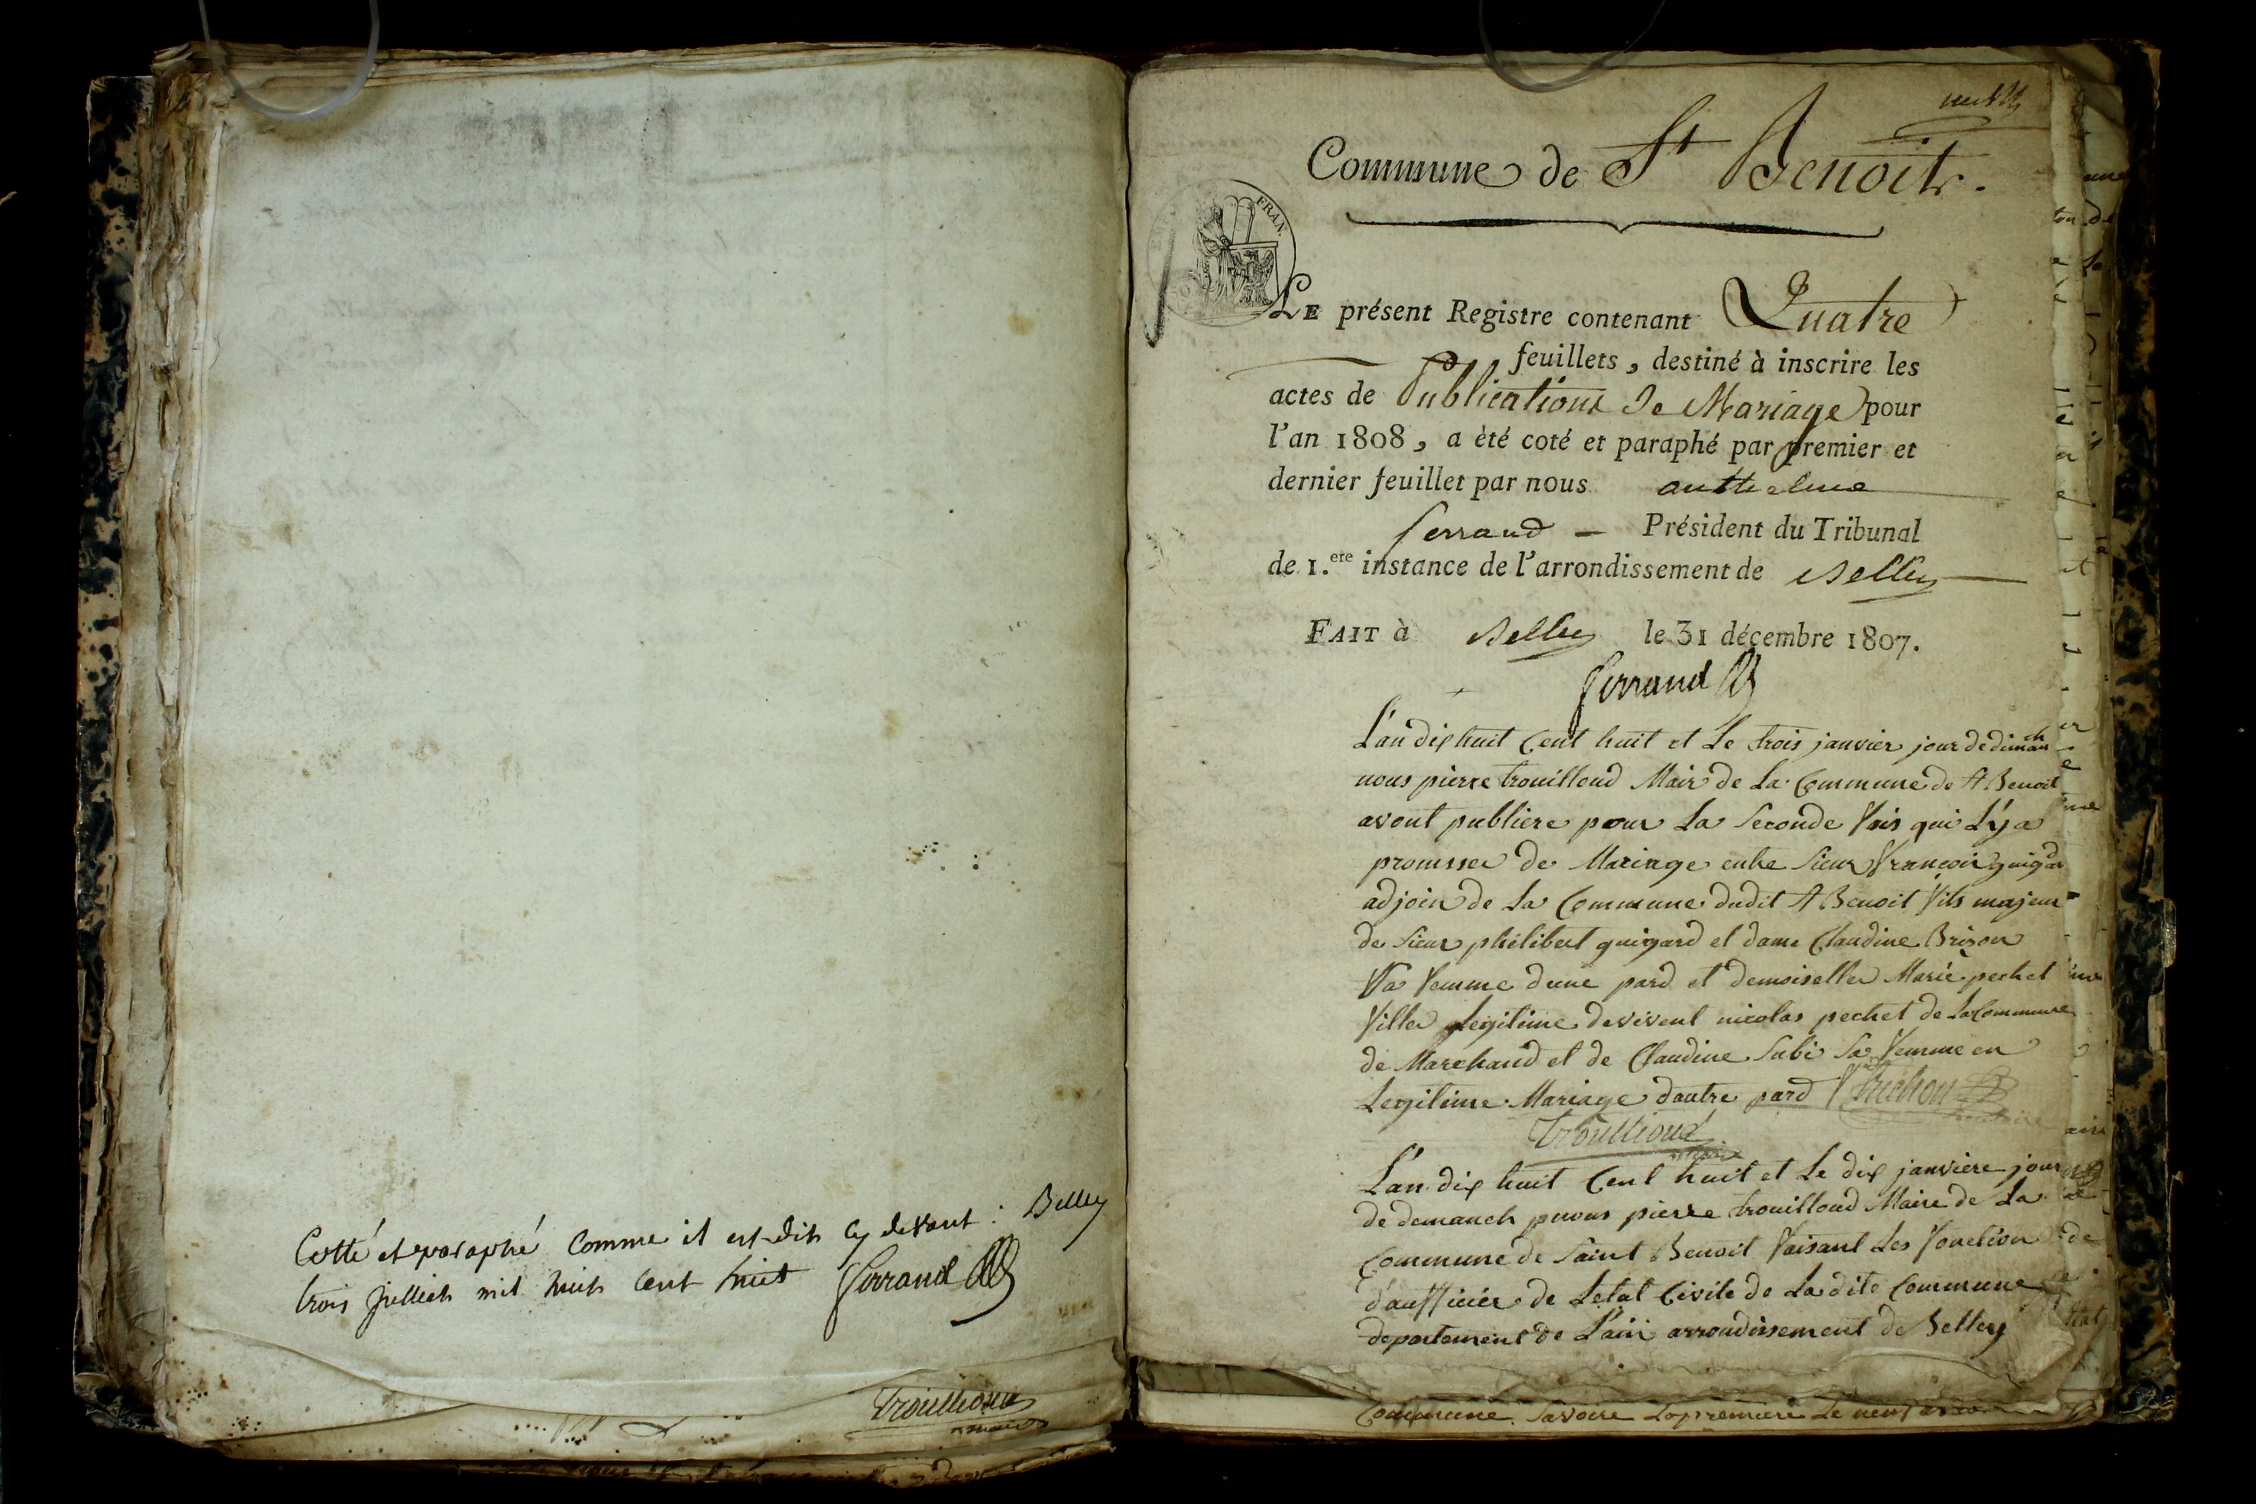 Cotté et paraphé comme il est dit cy devant : Belley
trois juillet mil huit cent huit Ferrand
Trouilloud
maire
Commune de St Benoit.
FRAN.
LE présent Registre contenant Quatre
feuillets, destiné à inscrire les
actes de Publications de Mariage pour
l'an 1808, a èté coté et paraphé par premier et
dernier feuillet par nous anthelme
ferrand — Président du Tribunal
de 1.ere instance de l'arrondissement de Belley
FAIT à Belley le 31 décembre 1807.
Ferrand
L'an dix huit Cent huit et Le trois janvier jour de diman ch
nous pierre trouilloud Mair de La Commune de St Benoit
avont publiere pour La Seconde Vois qui Ly a
promisse de Mariage entre Sieur Vrancois guigar
adjoin de La Commune dudit St Benoit Vils majeur
de Sieur phelibert guigard et dame Claudine Brizon
Va Vemme dune pard et demoiselle Marie pechet
Ville Legitime devivent nicolas pechet de La Commune
de Marchand et de Claudine Subi Sa Vemme en
Legitime Mariage dautre pard
Trouilloud
maire
L'an dix huit Cent huit et Le dix janviere jour
de demanch nous pierre trouilloud Maire de La
Commune de Saint Benoit Vaisant Les Vonction
d'aufficier de Letat Civile de La dite Commune
departement de L'ain arrondissement de Belley
Commune Savoire La premiere Le neuf